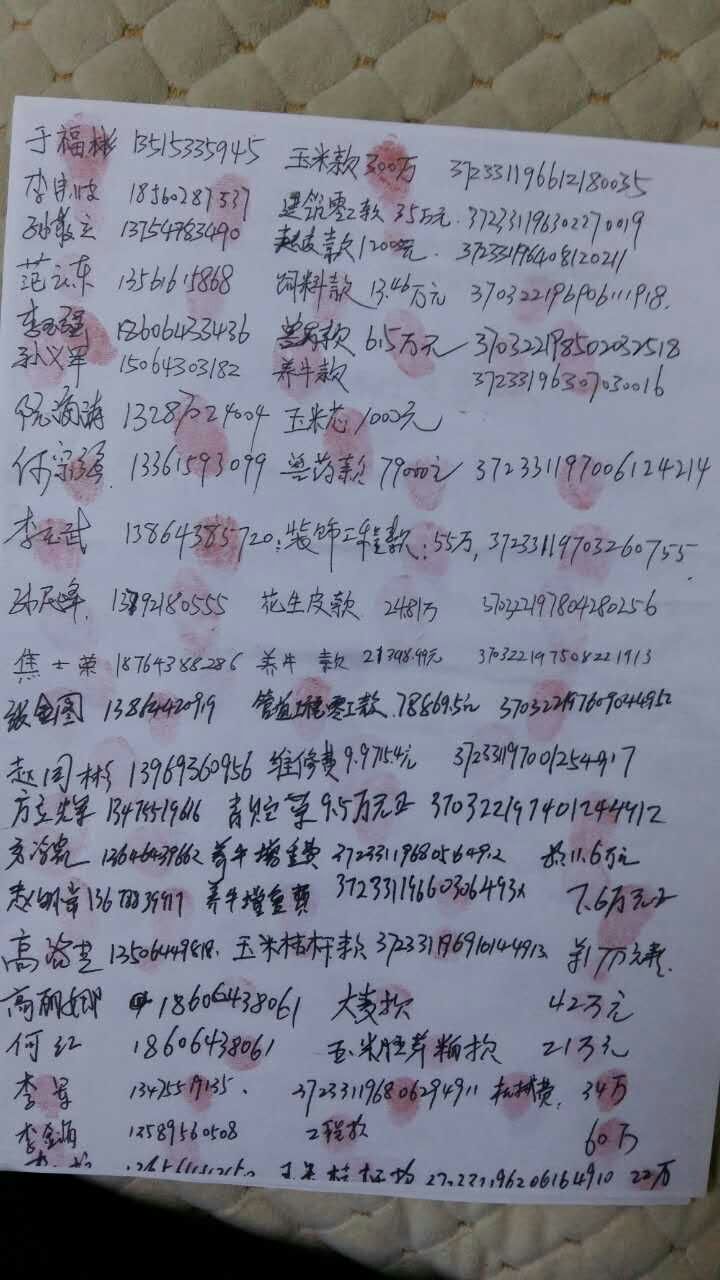 于福彬 13515335945 玉米款300万 372331196612180035
18560287537 建筑零工款 35万元. 372331196302270019
13754783490 款1200元. 372331196408120211
范云东 13561615868 饲料款 13.46万元 370322196906111918.
李玉强 18606433436 兽药款 6.15万元 370322198502032518
孙义军 15064303182 养牛款 372331196307030016
倪海涛 13287024004 玉米芯1000元
何宗强. 13361593099 兽药款 79000元 372331197006124214
李玉武 13864385720: 装饰工程款: 55万, 37233119703260755.
13792180555 花生皮款 24.81万 370322197804280256
焦士荣 18764388286 养牛款 21398.99元 370322197508221913
张金图 13864420919 管道工程零工款.78869.5元 370322197609044952
赵同彬 13969360956 维修费 9.9715.4元 372331197001254917
方立军 13475519616 青贮草9.5万元正 370322197401244912
13646439662 养牛增重费 37233119680564912 共11.6万元
赵明常 13678839917 养牛增重费 37233119660306493X 7.6万元正
13506449818. 玉米秸秆款 372331196910144913 万元整.
高丽娜 18606438061 大麦款 42万元
何红 18606438061 玉米胚芽粕款 21万元
李军 13475519135. 372331196806294911 机械费. 34万
13589560508 工程款 60万
22万